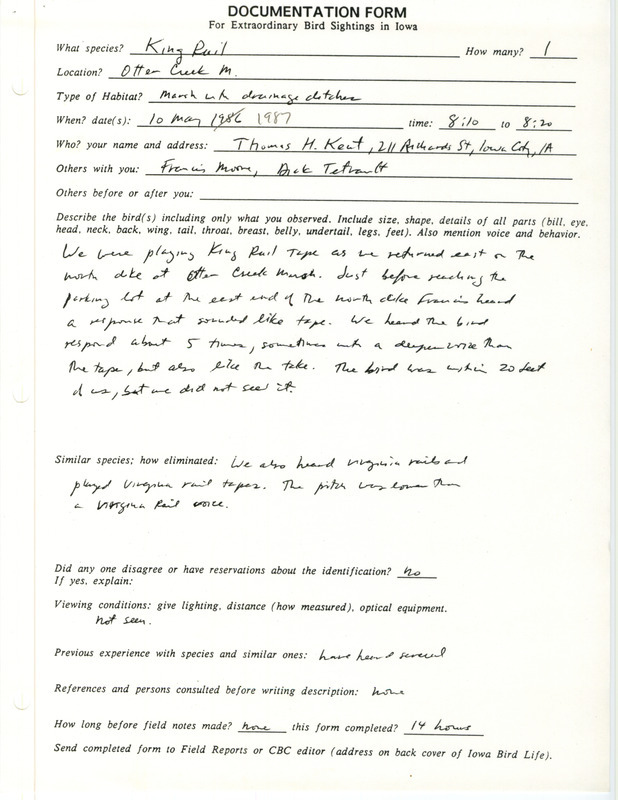 DOCUMENTATION FORM
For Extraordinary Bird Sightings in Iowa
What species? King Rail How many? 1
Location? Otter Creek M.
Type of Habitat? Marsh with drainage ditches
When? date(s): 10 May 1986 1987 time: 8:10 to 8:20
Who? your name and address: Thomas H. Kent, 211 Richards St, Iowa City, IA
Others with you: Francis Moore, Dick Tetrault
Others before or after you:
Describe the bird(s) including only what you observed. Include size, shape, details of all parts (bill, eye,
head, neck, back, wing, tail, throat, breast, belly, undertail, legs, feet). Also mention voice and behavior.
We were playing King Rail tape as we returned east on the
north dike at Otter Creek Marsh. Just before reaching the
parking lot at the east end of the north dike Francis heard
a response that sounded like tape. We heard the bird
respond about 5 times, sometimes with a deeper voice than
the tape, but also like the take. The bird was within 20 feet
of us, but we did not see it.
Similar species; how eliminated: We also heard virginia rails and
played Virginia rail tapes. The pitch was lower than
a Virginia Rail voice.
Did any one disagree or have reservations about the identification? no
If yes, explain:
Viewing conditions: give lighting, distance (how measured), optical equipment.
not seen.
Previous experience with species and similar ones: have heard several
References and persons consulted before writing description: none
How long before field notes made? none this form completed? 14 hours
Send completed form to Field Reports or CBC editor (address on back cover of Iowa Bird Life).